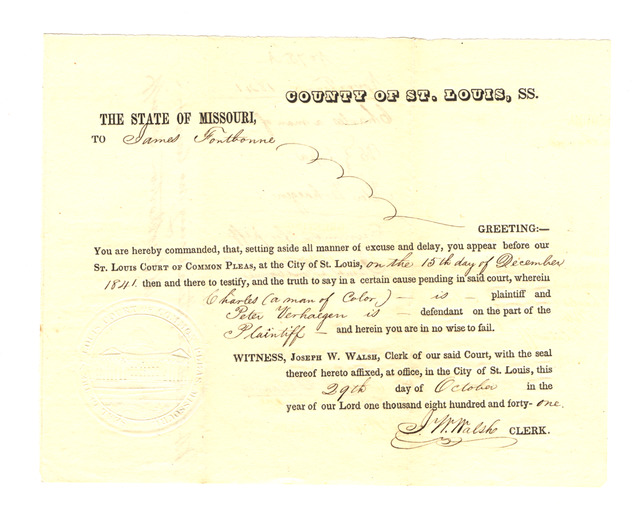 COUNTY OF ST. LOUIS, SS.
THE STATE OF MISSOURI,
TO James Fontbonne
GREETING:—
You are hereby commanded, that, setting aside all manner of excuse and delay, you appear before our
ST. LOUIS COURT OF COMMON PLEAS, at the City of St. Louis, on the 15th day of December
1841. then and there to testify, and the truth to say in a certain cause pending in said court, wherein
Charles (a man of Color,) — is — plaintiff and
Peter Verhaegen is — defendant on the part of the
Plaintiff — and herein you are in no wise to fail.
WITNESS, JOSEPH W. WALSH, Clerk of our said Court, with the seal
thereof hereto affixed, at office, in the City of St. Louis, this
29th day of October in the
year of our Lord one thousand eight hundred and forty-one.
J. W. Walsh CLERK.